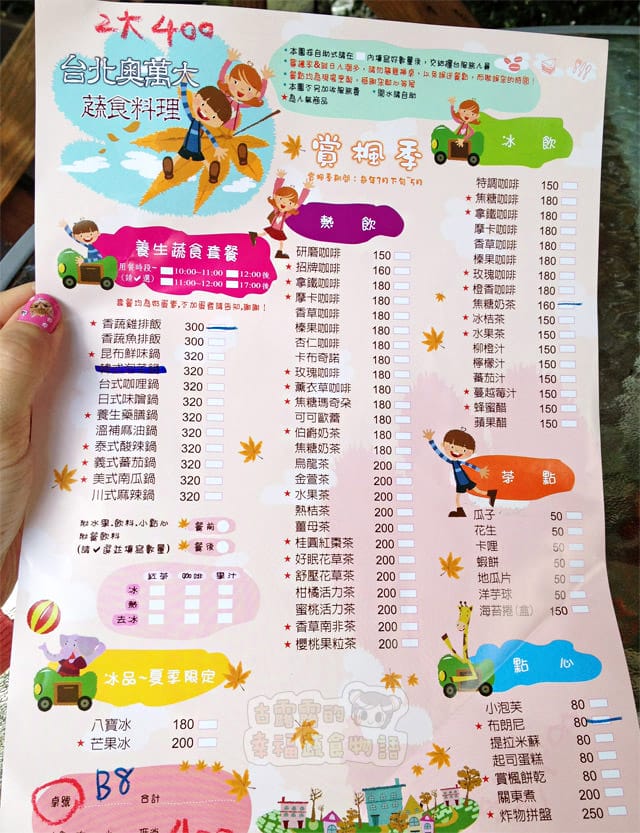 2大 400
台北奧萬大
蔬食料理
*本園在自助式請在□內填寫好數量後，交給櫃台服務人員
*本園不另加收服務費 *開水請自助
★為人氣商品
賞楓季
養生蔬食套餐
用餐時段~ 10:00~11:00 12:00後
(請✔選) 11:00~12:00 17:00後
套餐均為奶蛋素，不加蛋者請告知，謝謝！
★香蔬雞排飯 300
香蔬魚排飯 300
★昆布鮮味鍋 320
320
台式咖哩鍋 320
日式味噌鍋 320
★養生藥膳鍋 320
溫補麻油鍋 320
★泰式酸辣鍋 320
★義式蕃茄鍋 320
★美式南瓜鍋 320
川式麻辣鍋 320
附水果，飲料，小點心 餐前
附餐飲料
(請✔選並填寫數量) 餐後
紅茶 咖啡 果汁
冰
熱
去冰
冰品~夏季限定
八寶冰 180
★芒果冰 200
桌號 B8 合計
熱飲
研磨咖啡 150
招牌咖啡 160
★拿鐵咖啡 180
★摩卡咖啡 180
香草咖啡 180
榛果咖啡 180
杏仁咖啡 180
卡布奇諾 180
★玫瑰咖啡 180
★薰衣草咖啡 180
★焦糖瑪奇朵 180
可可歐蕾 180
★伯爵奶茶 180
焦糖奶茶 180
烏龍茶 200
金萱茶 200
★水果茶 200
熱桔茶 200
薑母茶 200
★桂圓紅棗茶 200
★好眠花草茶 200
★舒壓花草茶 200
柑橘活力茶 200
蜜桃活力茶 200
★香草南非茶 200
★櫻桃果粒茶 200
冰飲
特調咖啡 150
★焦糖咖啡 180
★拿鐵咖啡 180
摩卡咖啡 180
香草咖啡 180
榛果咖啡 180
★玫瑰咖啡 180
★橙香咖啡 180
焦糖奶茶 160
★冰桔茶 150
★水果茶 150
柳橙汁 150
檸檬汁 150
蕃茄汁 150
★蔓越莓汁 150
★蜂蜜醋 150
蘋果醋 150
茶點
瓜子 50
花生 50
卡哩 50
蝦餅 50
地瓜片 50
洋芋球 50
海苔捲(盒) 150
點心
小泡芙 80
★布朗尼 80
提拉米蘇 80
起司蛋糕 80
★賞楓餅乾 80
關東煮 200
★炸物拼盤 250
古露露的
幸福蔬食物語